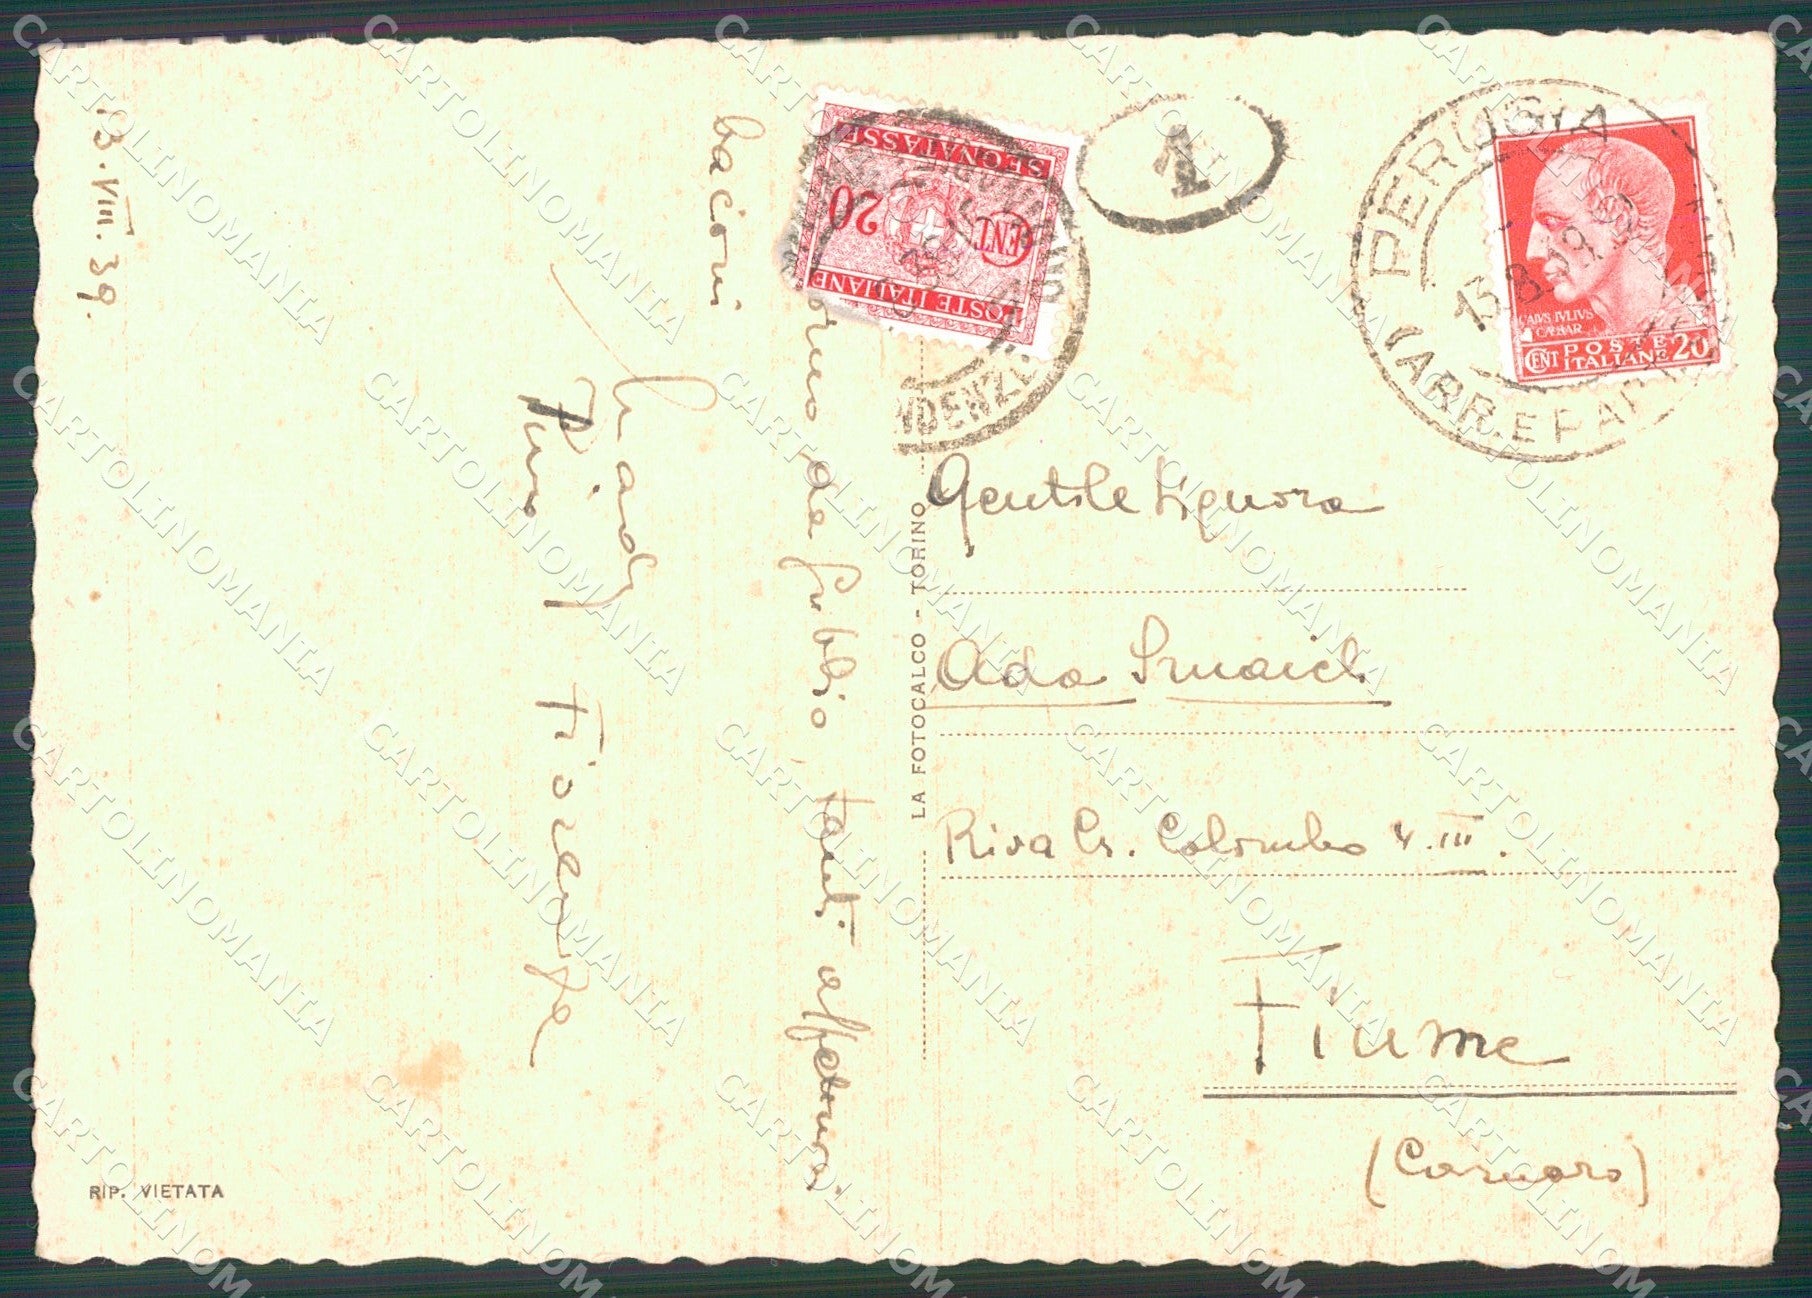 13.VIII.39.
da Gubbio tanti affettuosi
bacioni
Pino Fiorenza
RIP. VIETATA
LA FOTOCALCO - TORINO
SEGNATASSE
CENT 20
POSTE ITALIANE
1
PERUGIA
13.8.39
(ARR. E PAR
CAIVS IVLIVS
CAESAR
CENT POSTE ITALIANE 20
Gentile Signora
Ada Smaich
Riva Cr. Colombo 4.III.
Fiume
(Carnaro)
CARTOLINOMANIA